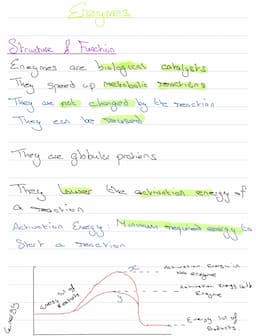 Enzymes
Structure & Function
Enzymes are biological catalysts
They speed up metabolic reactions
They are not changed by the reaction
They can be reused
They are globular proteins
They lower the activation energy of
a reaction
Activation Energy: Minimum required energy to
Start a reaction
x
Activation Energy without
Enzyme
y
Activation Energy with
Enzyme
Energy lvl of
Energy lvl of
Products
Energy